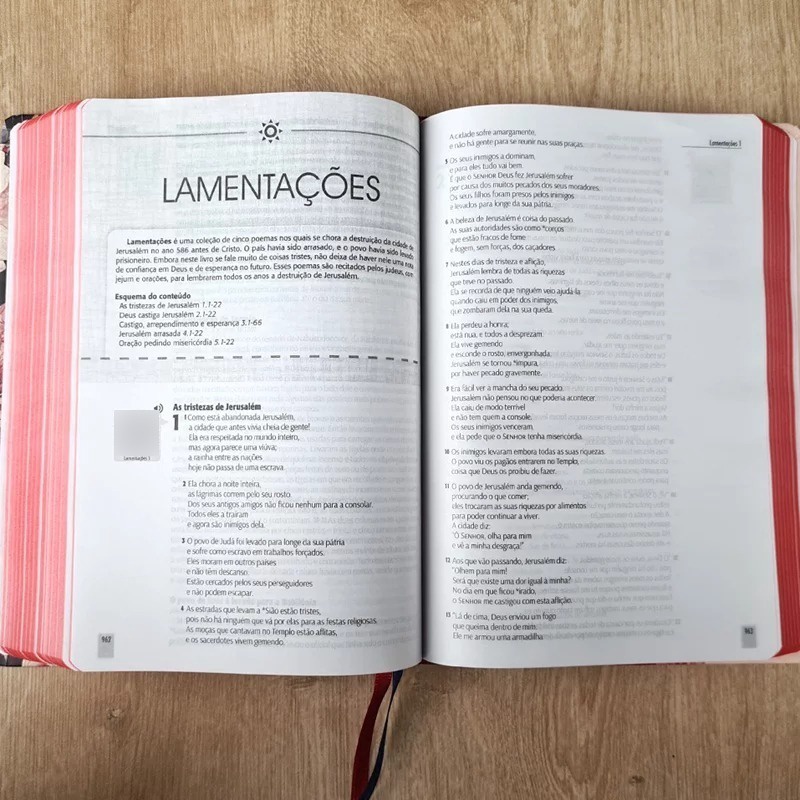 LAMENTAÇÕES
Lamentações é uma coleção de cinco poemas nos quais se chora a destruição da cidade de
Jerusalém no ano 586 antes de Cristo. O país havia sido arrasado, e o povo havia sido levado
prisioneiro. Embora neste livro se fale muito de coisas tristes, não deixa de haver nele uma nota
de confiança em Deus e de esperança no futuro. Esses poemas são recitados pelos judeus, com
jejum e orações, para lembrarem todos os anos a destruição de Jerusalém.
Esquema do conteúdo
As tristezas de Jerusalém 1.1-22
Deus castiga Jerusalém 2.1-22
Castigo, arrependimento e esperança 3.1-66
Jerusalém arrasada 4.1-22
Oração pedindo misericórdia 5.1-22
As tristezas de Jerusalém
1 1 Como está abandonada Jerusalém,
a cidade que antes vivia cheia de gente!
Ela era respeitada no mundo inteiro,
mas agora parece uma viúva;
a rainha entre as nações
hoje não passa de uma escrava.
Lamentações 1
2 Ela chora a noite inteira,
as lágrimas correm pelo seu rosto.
Dos seus antigos amigos não ficou nenhum para a consolar.
Todos eles a traíram
e agora são inimigos dela.
3 O povo de Judá foi levado para longe da sua pátria
e sofre como escravo em trabalhos forçados.
Eles moram em outros países
e não têm descanso.
Estão cercados pelos seus perseguidores
e não podem escapar.
4 As estradas que levam a *Sião estão tristes,
pois não há ninguém que vá por elas para as festas religiosas.
As moças que cantavam no Templo estão aflitas,
e os sacerdotes vivem gemendo.
962
Lamentações 1
A cidade sofre amargamente,
e não há gente para se reunir nas suas praças.
5 Os seus inimigos a dominam,
e para eles tudo vai bem.
É que o SENHOR Deus fez Jerusalém sofrer
por causa dos muitos pecados dos seus moradores.
Os seus filhos foram presos pelos inimigos
e levados para longe da sua pátria.
6 A beleza de Jerusalém é coisa do passado.
As suas autoridades são como *corços
que estão fracos de fome
e fogem, sem forças, dos caçadores.
7 Nestes dias de tristeza e aflição,
Jerusalém lembra de todas as riquezas
que teve no passado.
Ela se recorda de que ninguém veio ajudá-la
quando caiu em poder dos inimigos,
que zombaram dela na sua queda.
8 Ela perdeu a honra;
está nua, e todos a desprezam.
Ela vive gemendo
e esconde o rosto, envergonhada.
Jerusalém se tornou *impura,
por haver pecado gravemente.
9 Era fácil ver a mancha do seu pecado.
Jerusalém não pensou no que poderia acontecer.
Ela caiu de modo terrível
e não tem quem a console.
Os seus inimigos venceram,
e ela pede que o SENHOR tenha misericórdia.
10 Os inimigos levaram embora todas as suas riquezas.
O povo viu os pagãos entrarem no Templo,
coisa que Deus os proibiu de fazer.
11 O povo de Jerusalém anda gemendo,
procurando o que comer;
eles trocaram as suas riquezas por alimentos
para poder continuar a viver.
A cidade diz:
"Ó SENHOR, olha para mim
e vê a minha desgraça!"
12 Aos que vão passando, Jerusalém diz:
"Olhem para mim!
Será que existe uma dor igual à minha?
No dia em que ficou *irado,
o SENHOR me castigou com esta aflição.
13 "Lá de cima, Deus enviou um fogo
que queima dentro de mim.
Ele me armou uma armadilha
963